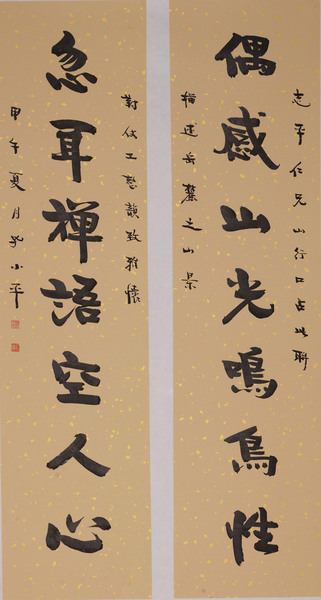 偶感山光鳴鳥性
志平仁兄山行口占此聯
描述岳麓之山景
忽耳禪語空人心
對仗工整韻致雅懷
甲午夏月孔小平